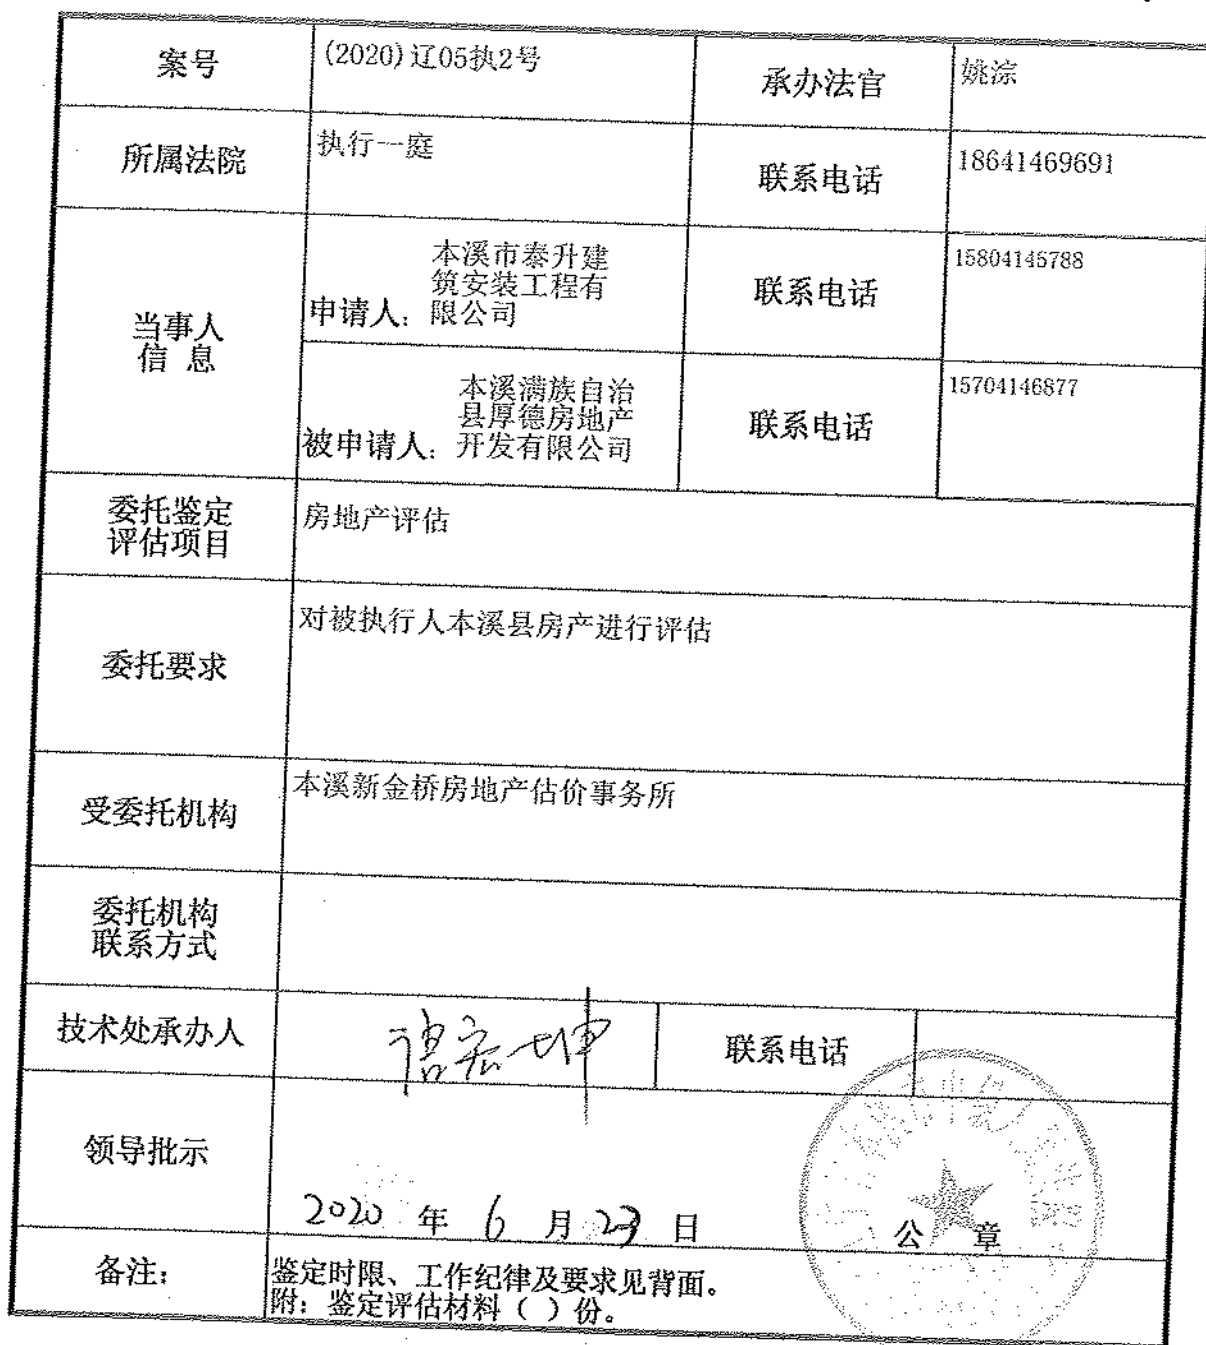 案号 (2020)辽05执2号 承办法官 姚淙
所属法院 执行一庭 联系电话 18641469691
当事人
信 息
本溪市泰升建
筑安装工程有
申请人：限公司
联系电话 15804145788
本溪满族自治
县厚德房地产
被申请人：开发有限公司
联系电话 15704146877
委托鉴定
评估项目
房地产评估
委托要求 对被执行人本溪县房产进行评估
受委托机构 本溪新金桥房地产估价事务所
委托机构
联系方式
技术处承办人 联系电话
领导批示
2020 年 6 月 23 日 公 章
备注： 鉴定时限、工作纪律及要求见背面。
附：鉴定评估材料（ ）份。